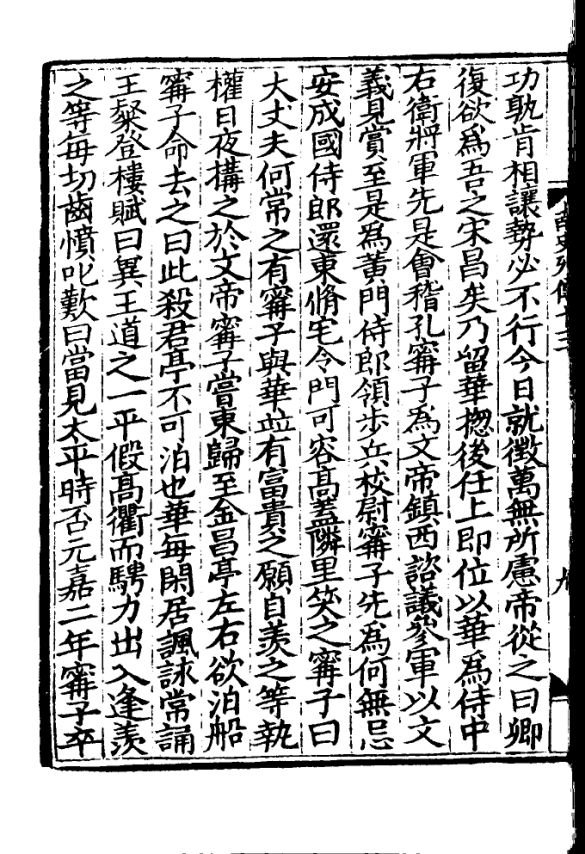 功孰肯相讓勢必不行今日就徵萬無所慮帝從之曰卿
復欲爲吾之宋昌矣乃留華揔後任上即位以華爲侍中
右衛將軍先是會稽孔甯子爲文帝鎮西諮議參軍以文
義見賞至是爲黃門侍郎領步兵校尉甯子先爲何無忌
安成國侍郎還東脩宅令門可容高蓋隣里笑之甯子曰
大丈夫何常之有甯子與華竝有富貴之願自羨之等執
權日夜構之於文帝甯子嘗東歸至金昌亭左右欲泊船
甯子命去之曰此殺君亭不可泊也華每閑居諷詠常誦
王粲登樓賦曰異王道之一平假高衢而騁力出入逢羨
之等每切齒憤叱歎曰當見太平時否元嘉二年甯子卒